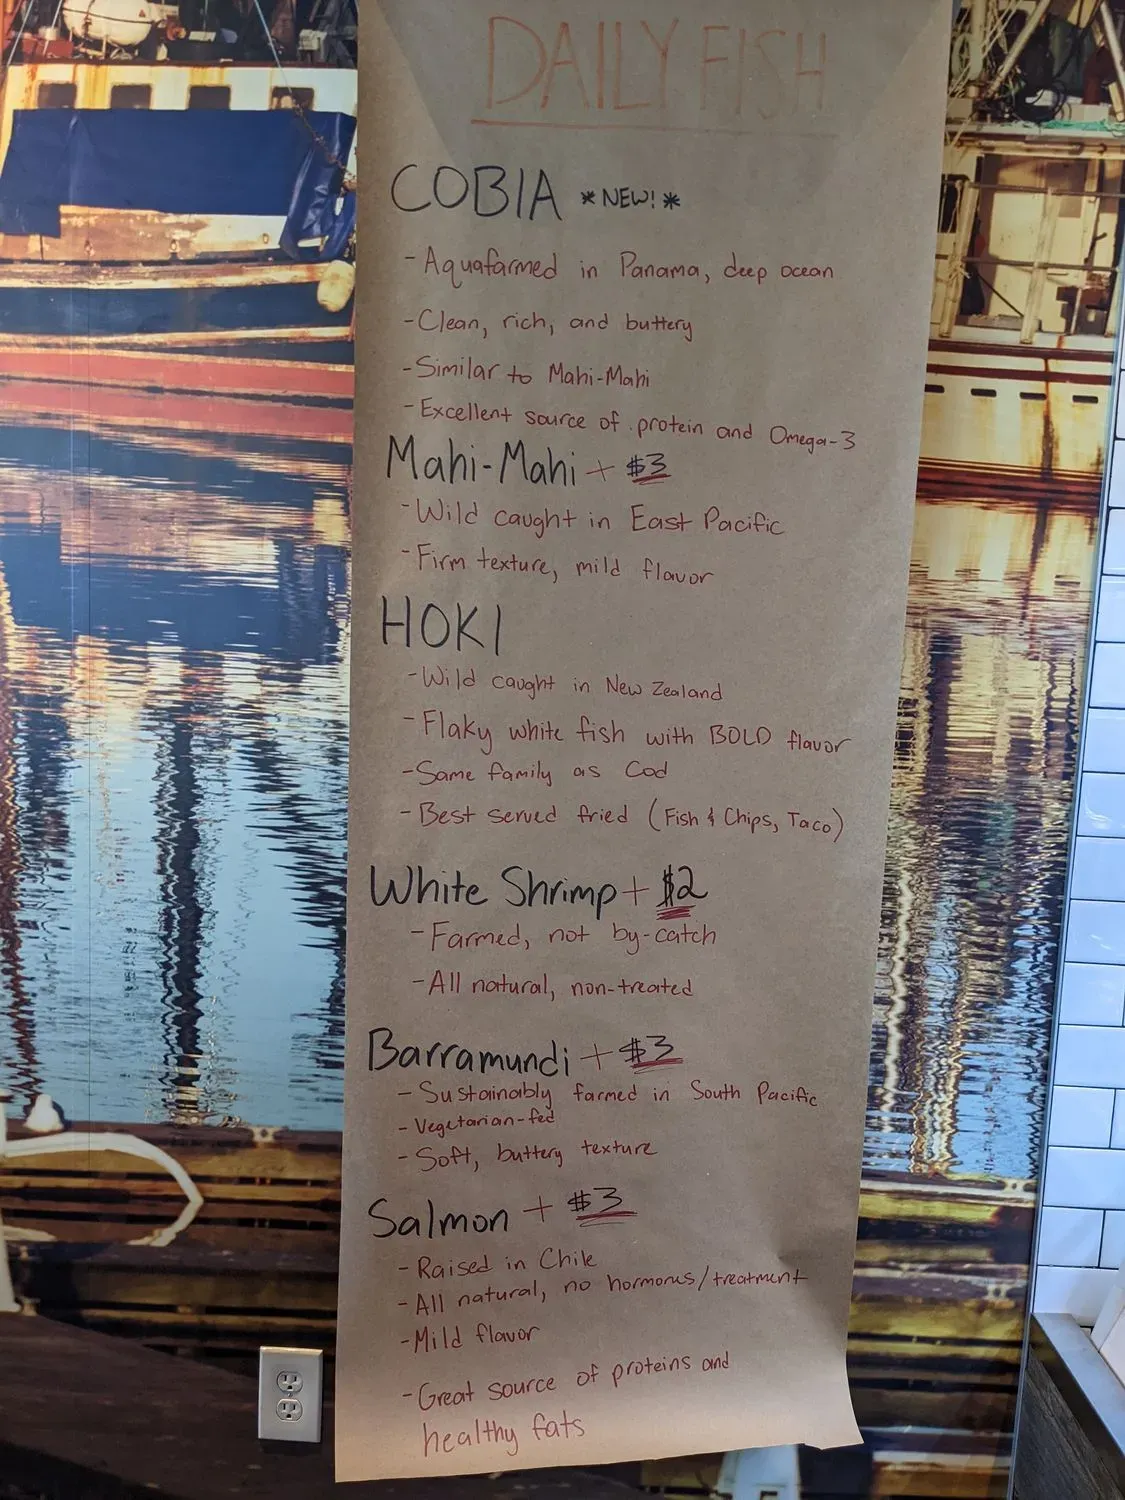 DAILY FISH
COBIA *NEW!*
- Aquafarmed in Panama, deep ocean
- Clean, rich, and buttery
- Similar to Mahi-Mahi
- Excellent source of protein and Omega-3
Mahi-Mahi + $3
- Wild caught in East Pacific
- Firm texture, mild flavor
HOKI
- Wild caught in New Zealand
- Flaky white fish with BOLD flavor
- Same family as Cod
- Best served fried (Fish & Chips, Taco)
White Shrimp + $2
- Farmed, not by-catch
- All natural, non-treated
Barramundi + $3
- Sustainably farmed in South Pacific
- Vegetarian-fed
- Soft, buttery texture
Salmon + $3
- Raised in Chile
- All natural, no hormones/treatment
- Mild flavor
- Great source of proteins and
healthy fats